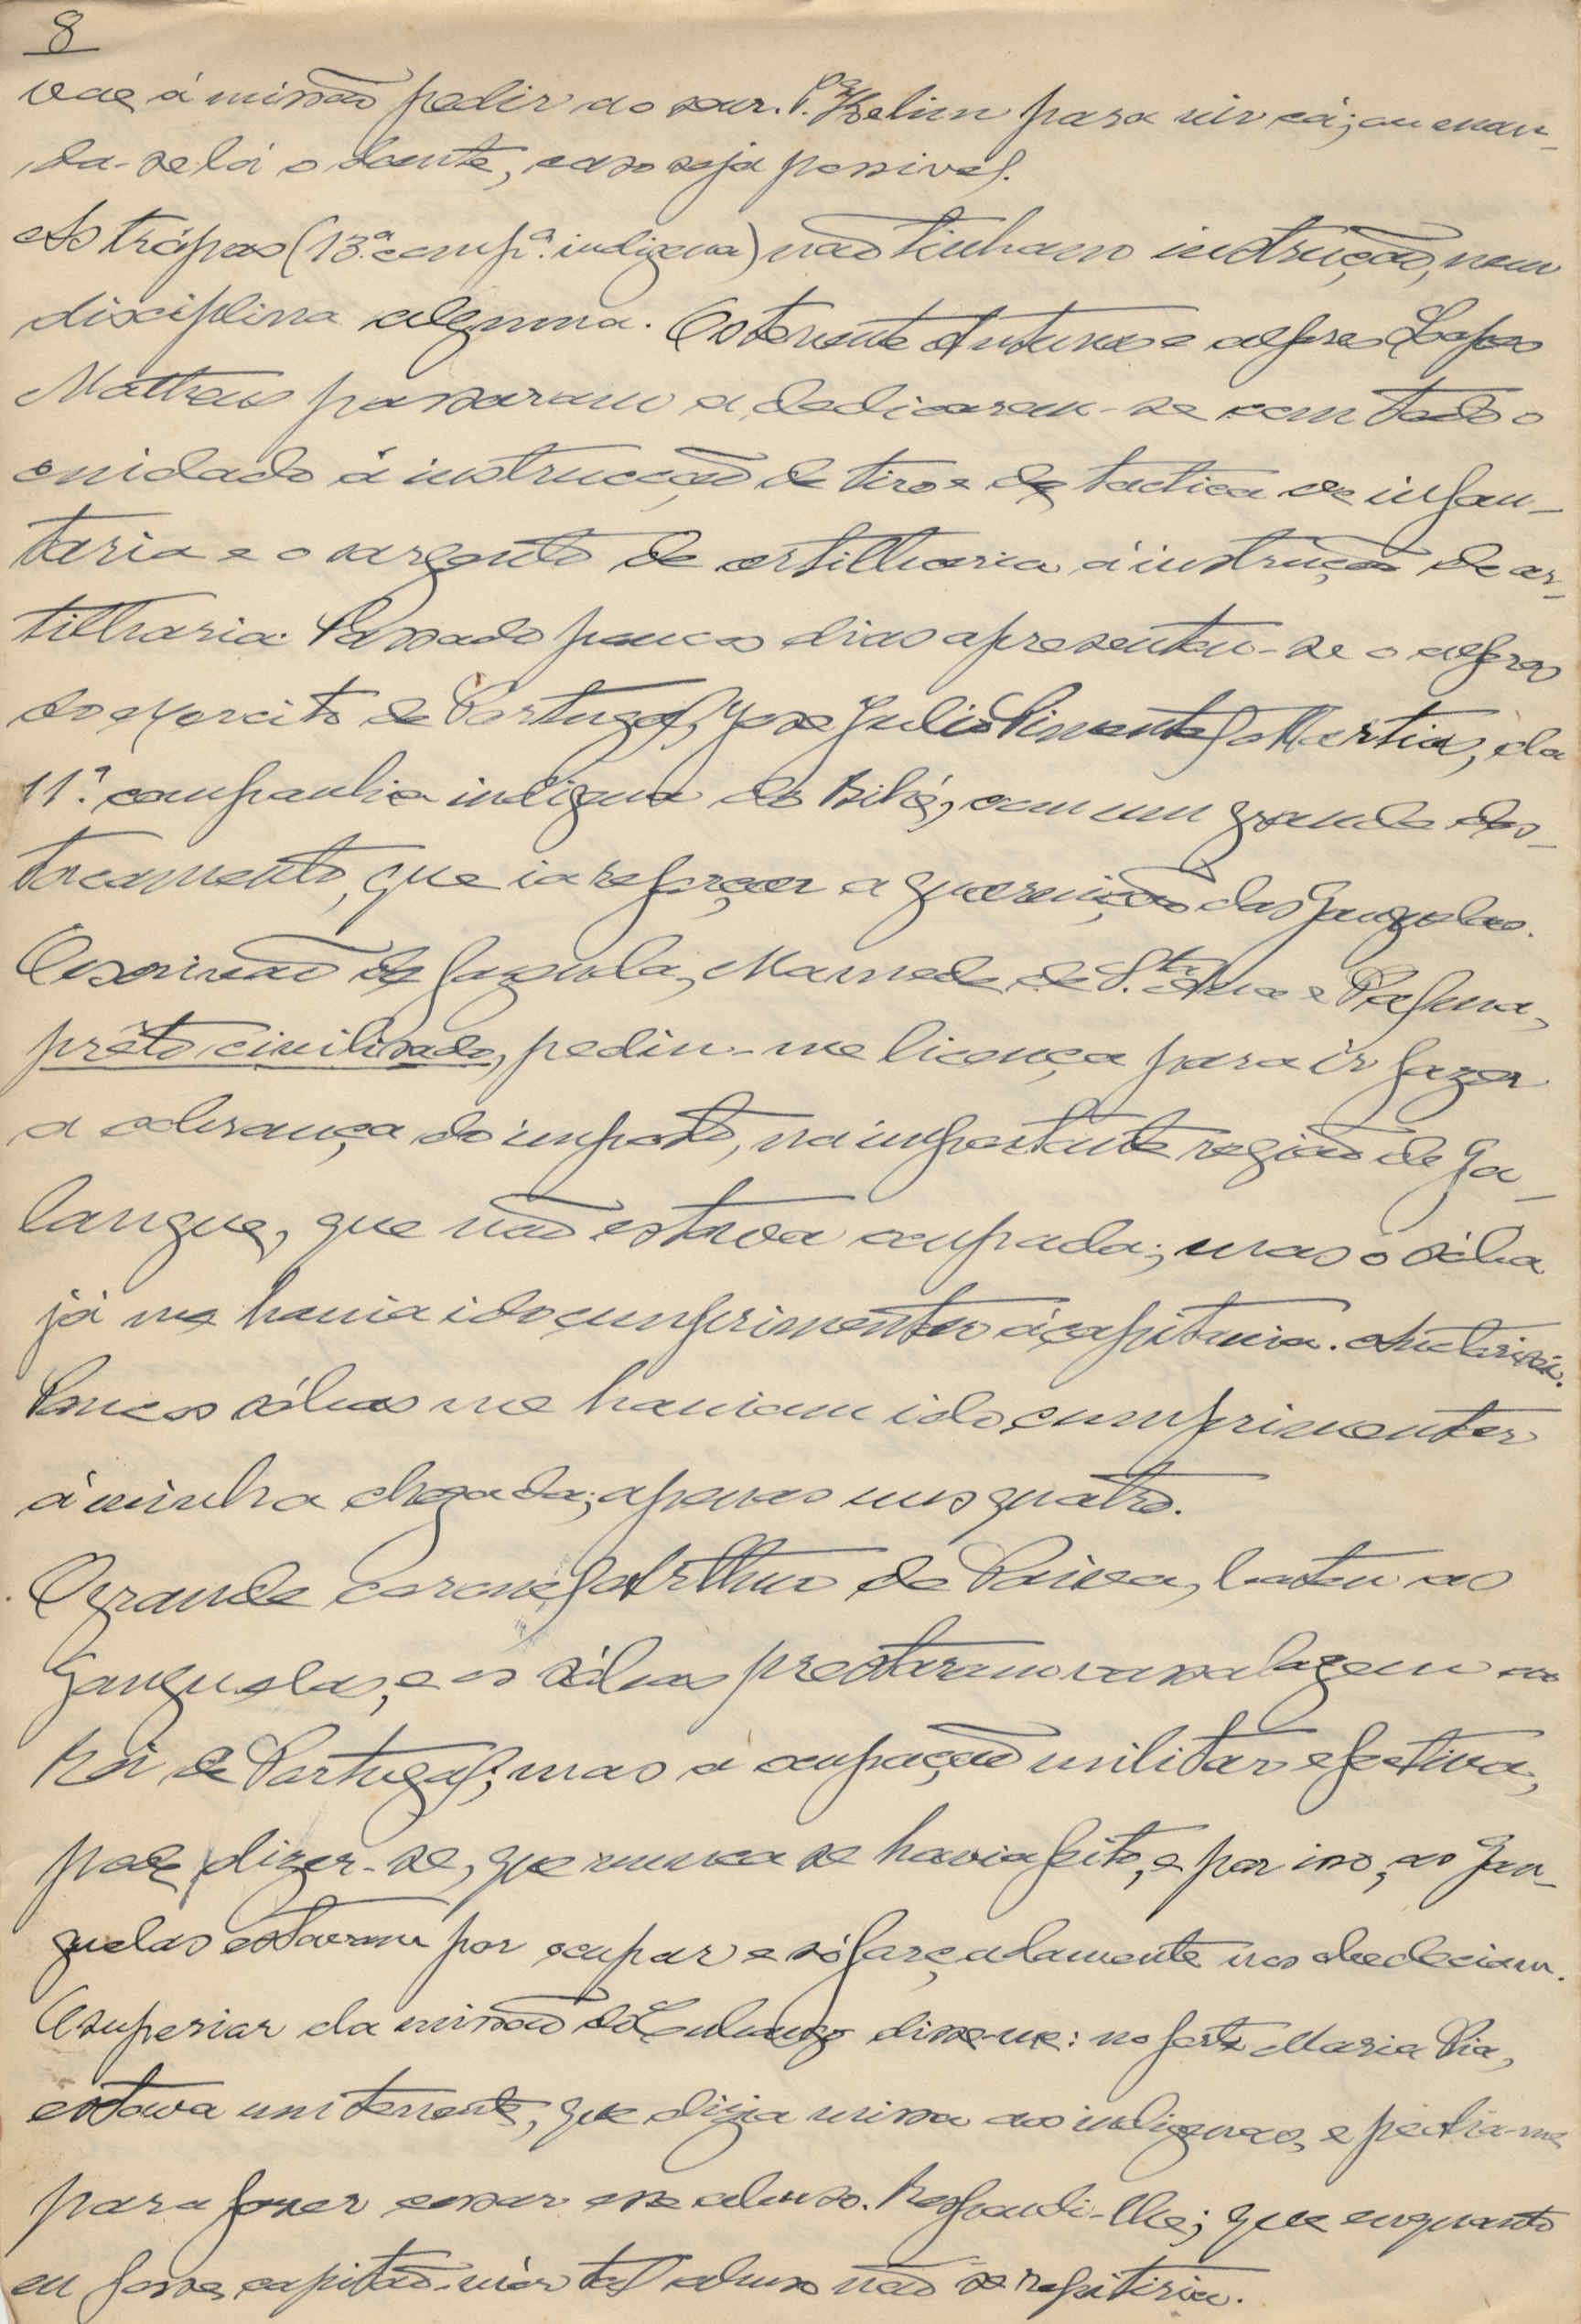 8
vae á missão pedir ao snr. P.e Kelinn para vir cá; ou man-
da-se lá o doente, caso seja possivel.
As trópas (13.ª comp.ª indigena) não tinham instrução, nem
disciplina alguma. Os tenente Antunes e alferes Lopes
Matheus passaram a dedicarem-se com todo o
cuidado á instrucção de tiro e de tactica de infan-
taria e o sargento de artilharia á instrução de ar-
tilharia. Passado poucos dias apresentou-se o alferes
do exercito de Portugal, José Julio Pimentel Martins, da
11.ª companhia indigena do Bihé, com um grande des-
tacamento, que ia reforçar a guarnição das Ganguelas.
O escrivão de fazenda, Mamede de S.ta Ana e Palma,
prêto civilisado, pediu-me licença para ir fazer
a cobrança do imposto, na importante região de Ga-
langue, que não estava ocupada; mas o sóba
já me havia ido cumprimentar á capitania. Auctorisei.
Poucos sóbas me haviam ido cumprimentar
á minha chegada; apenas uns quatro.
O grande coronel Arthur de Paiva, bateu as
Ganguelas, e os sóbas prestaram vassalagem ao
Rei de Portugal; mas a ocupação militar efectiva,
pode dizer-se, que nunca se havia feito, e por isso, as Gan-
guelas estavam por ocupar e só forçadamente nos obedeciam.
O superior da missão do Cubango disse-me: no forte Maria Pia,
estava um tenente, que dizia missa aos indigenas, e pedia-me
para fazer cessar esse abuso. Respondi-lhe; que enquanto
eu fosse, capitão-mór tal abuso não se repitiria.